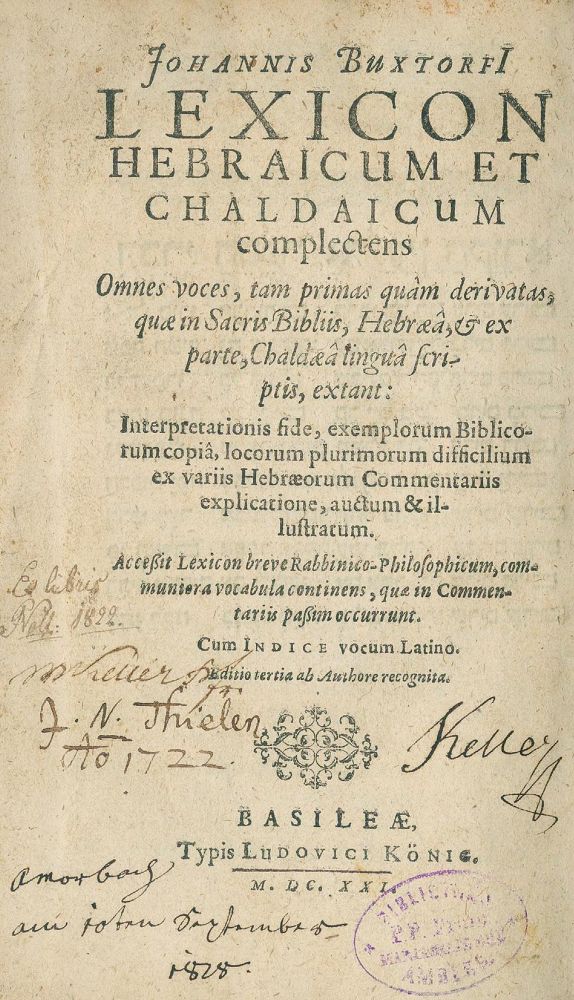 JOHANNIS BUXTORFI
LEXICON
HEBRAICUM ET
CHALDAICUM
complectens
Omnes voces, tam primas quàm derivatas,
quæ in Sacris Bibliis, Hebræâ, & ex
parte, Chaldæâ linguâ scri-
ptis, extant:
Interpretationis fide, exemplorum Biblico-
rum copiâ, locorum plurimorum difficilium
ex variis Hebræorum Commentariis
explicatione, auctum & il-
lustratum.
Accessit Lexicon breve Rabbinico-Philosophicum, com-
muniora vocabula continens, quæ in Commen-
tariis passim occurrunt.
Cum INDICE vocum Latino.
Editio tertia ab Authore recognita.
Ex libris
1822.
Keller
J. N. Thielen
Ao 1722.
Keller
BASILEÆ,
Typis LUDOVICI KÖNIG.
M. DC. XXI.
Amorbach
am 10ten September
1828.
BIBLIOTHECA
P.P.